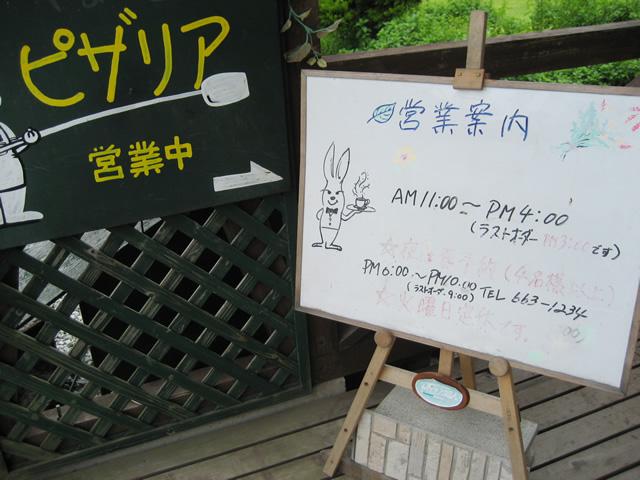 ピザリア
営業中
営業案内
AM 11:00〜PM 4:00
(ラストオーダー PM 3:00です)
☆夜は要予約(4名様以上)
PM 6:00〜PM10:00
(ラストオーダ 9:00) TEL 663-1234
☆火曜日定休です。